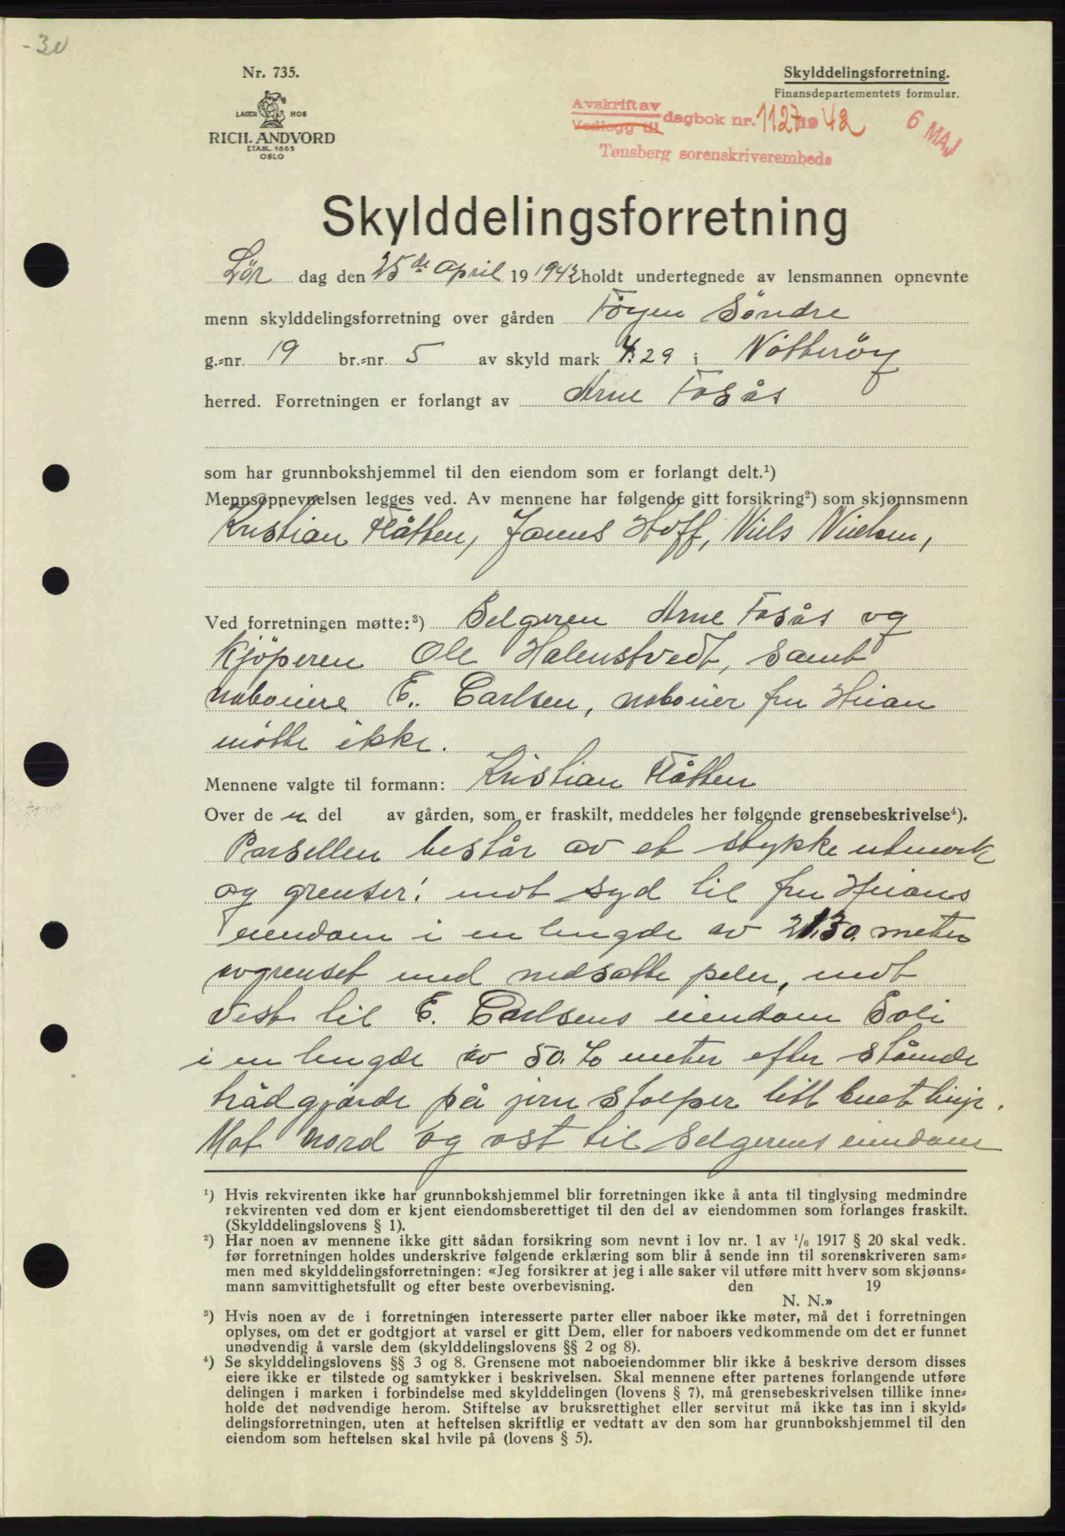 -30
Nr. 735.
LAGER HOS
RICH. ANDVORD
ETABL. 1865
OSLO
Skylddelingsforretning.
Finansdepartementets formular.
Avskrift av
Vedlegg til dagbok nr. 1127 1942
Tønsberg sorenskriverembede
6 MAJ
Skylddelingsforretning
Lør dag den 25de April 19 1942 holdt undertegnede av lensmannen opnevnte
menn skylddelingsforretning over gården Föyen Söndre
g.-nr. 19 br.-nr. 5 av skyld mark 4.29 i Nötteröy
herred. Forretningen er forlangt av Arne Fosås
som har grunnbokshjemmel til den eiendom som er forlangt delt.¹)
Mennsopnevnelsen legges ved. Av mennene har følgende gitt forsikring²) som skjønnsmenn
Kristian Flåtten, Hoff, Niels Nielsen,
Ved forretningen møtte:³) Selgeren Arne Fosås og
kjöperen Ole Holmstvedt, samt
naboeiere E. Carlsen, naboeier fru
mötte ikke.
Mennene valgte til formann: Kristian Flåtten
Over de n del av gården, som er fraskilt, meddeles her følgende grensebeskrivelse⁴).
Parsellen består av et stykke utmark
og grenser: mot syd til fru
eiendom i en lengde av 21.30. meter
avgrenset med nedsatte peler, mot
Vest til E. Carlsens eiendom Soli
i en lengde av 50. meter efter stående
trådgjerde på jern stolper litt buet linje.
Mot nord og öst til Selgerens eiendom
¹) Hvis rekvirenten ikke har grunnbokshjemmel blir forretningen ikke å anta til tinglysing medmindre
rekvirenten ved dom er kjent eiendomsberettiget til den del av eiendommen som forlanges fraskilt.
(Skylddelingslovens § 1).
²) Har noen av mennene ikke gitt sådan forsikring som nevnt i lov nr. 1 av ¹/₆ 1917 § 20 skal vedk.
før forretningen holdes underskrive følgende erklæring som blir å sende inn til sorenskriveren sam-
men med skylddelingsforretningen: «Jeg forsikrer at jeg i alle saker vil utføre mitt hverv som skjønns-
mann samvittighetsfullt og efter beste overbevisning. den 19
N. N.»
³) Hvis noen av de i forretningen interesserte parter eller naboer ikke møter, må det i forretningen
oplyses, om det er godtgjort at varsel er gitt Dem, eller for naboers vedkommende om det er funnet
unødvendig å varsle dem (skylddelingslovens §§ 2 og 8).
⁴) Se skylddelingslovens §§ 3 og 8. Grensene mot naboeiendommer blir ikke å beskrive dersom disses
eiere ikke er tilstede og samtykker i beskrivelsen. Skal mennene efter partenes forlangende utføre
delingen i marken i forbindelse med skylddelingen (lovens § 7), må grensebeskrivelsen tillike inne-
holde det nødvendige herom. Stiftelse av bruksrettighet eller servitut må ikke tas inn i skyld-
delingsforretningen, uten at heftelsen skriftlig er vedtatt av den som har grunnbokshjemmel til den
eiendom som heftelsen skal hvile på (lovens § 5).